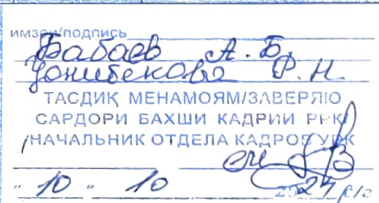 имзои/подпись
Бабаев А. Б.
Донибекова Ф. Н.
ТАСДИҚ МЕНАМОЯМ/ЗАВЕРЯЮ
САРДОРИ БАХШИ КАДРИИ РРК/
НАЧАЛЬНИК ОТДЕЛА КАДРОВ УРК
"10" 10 2024